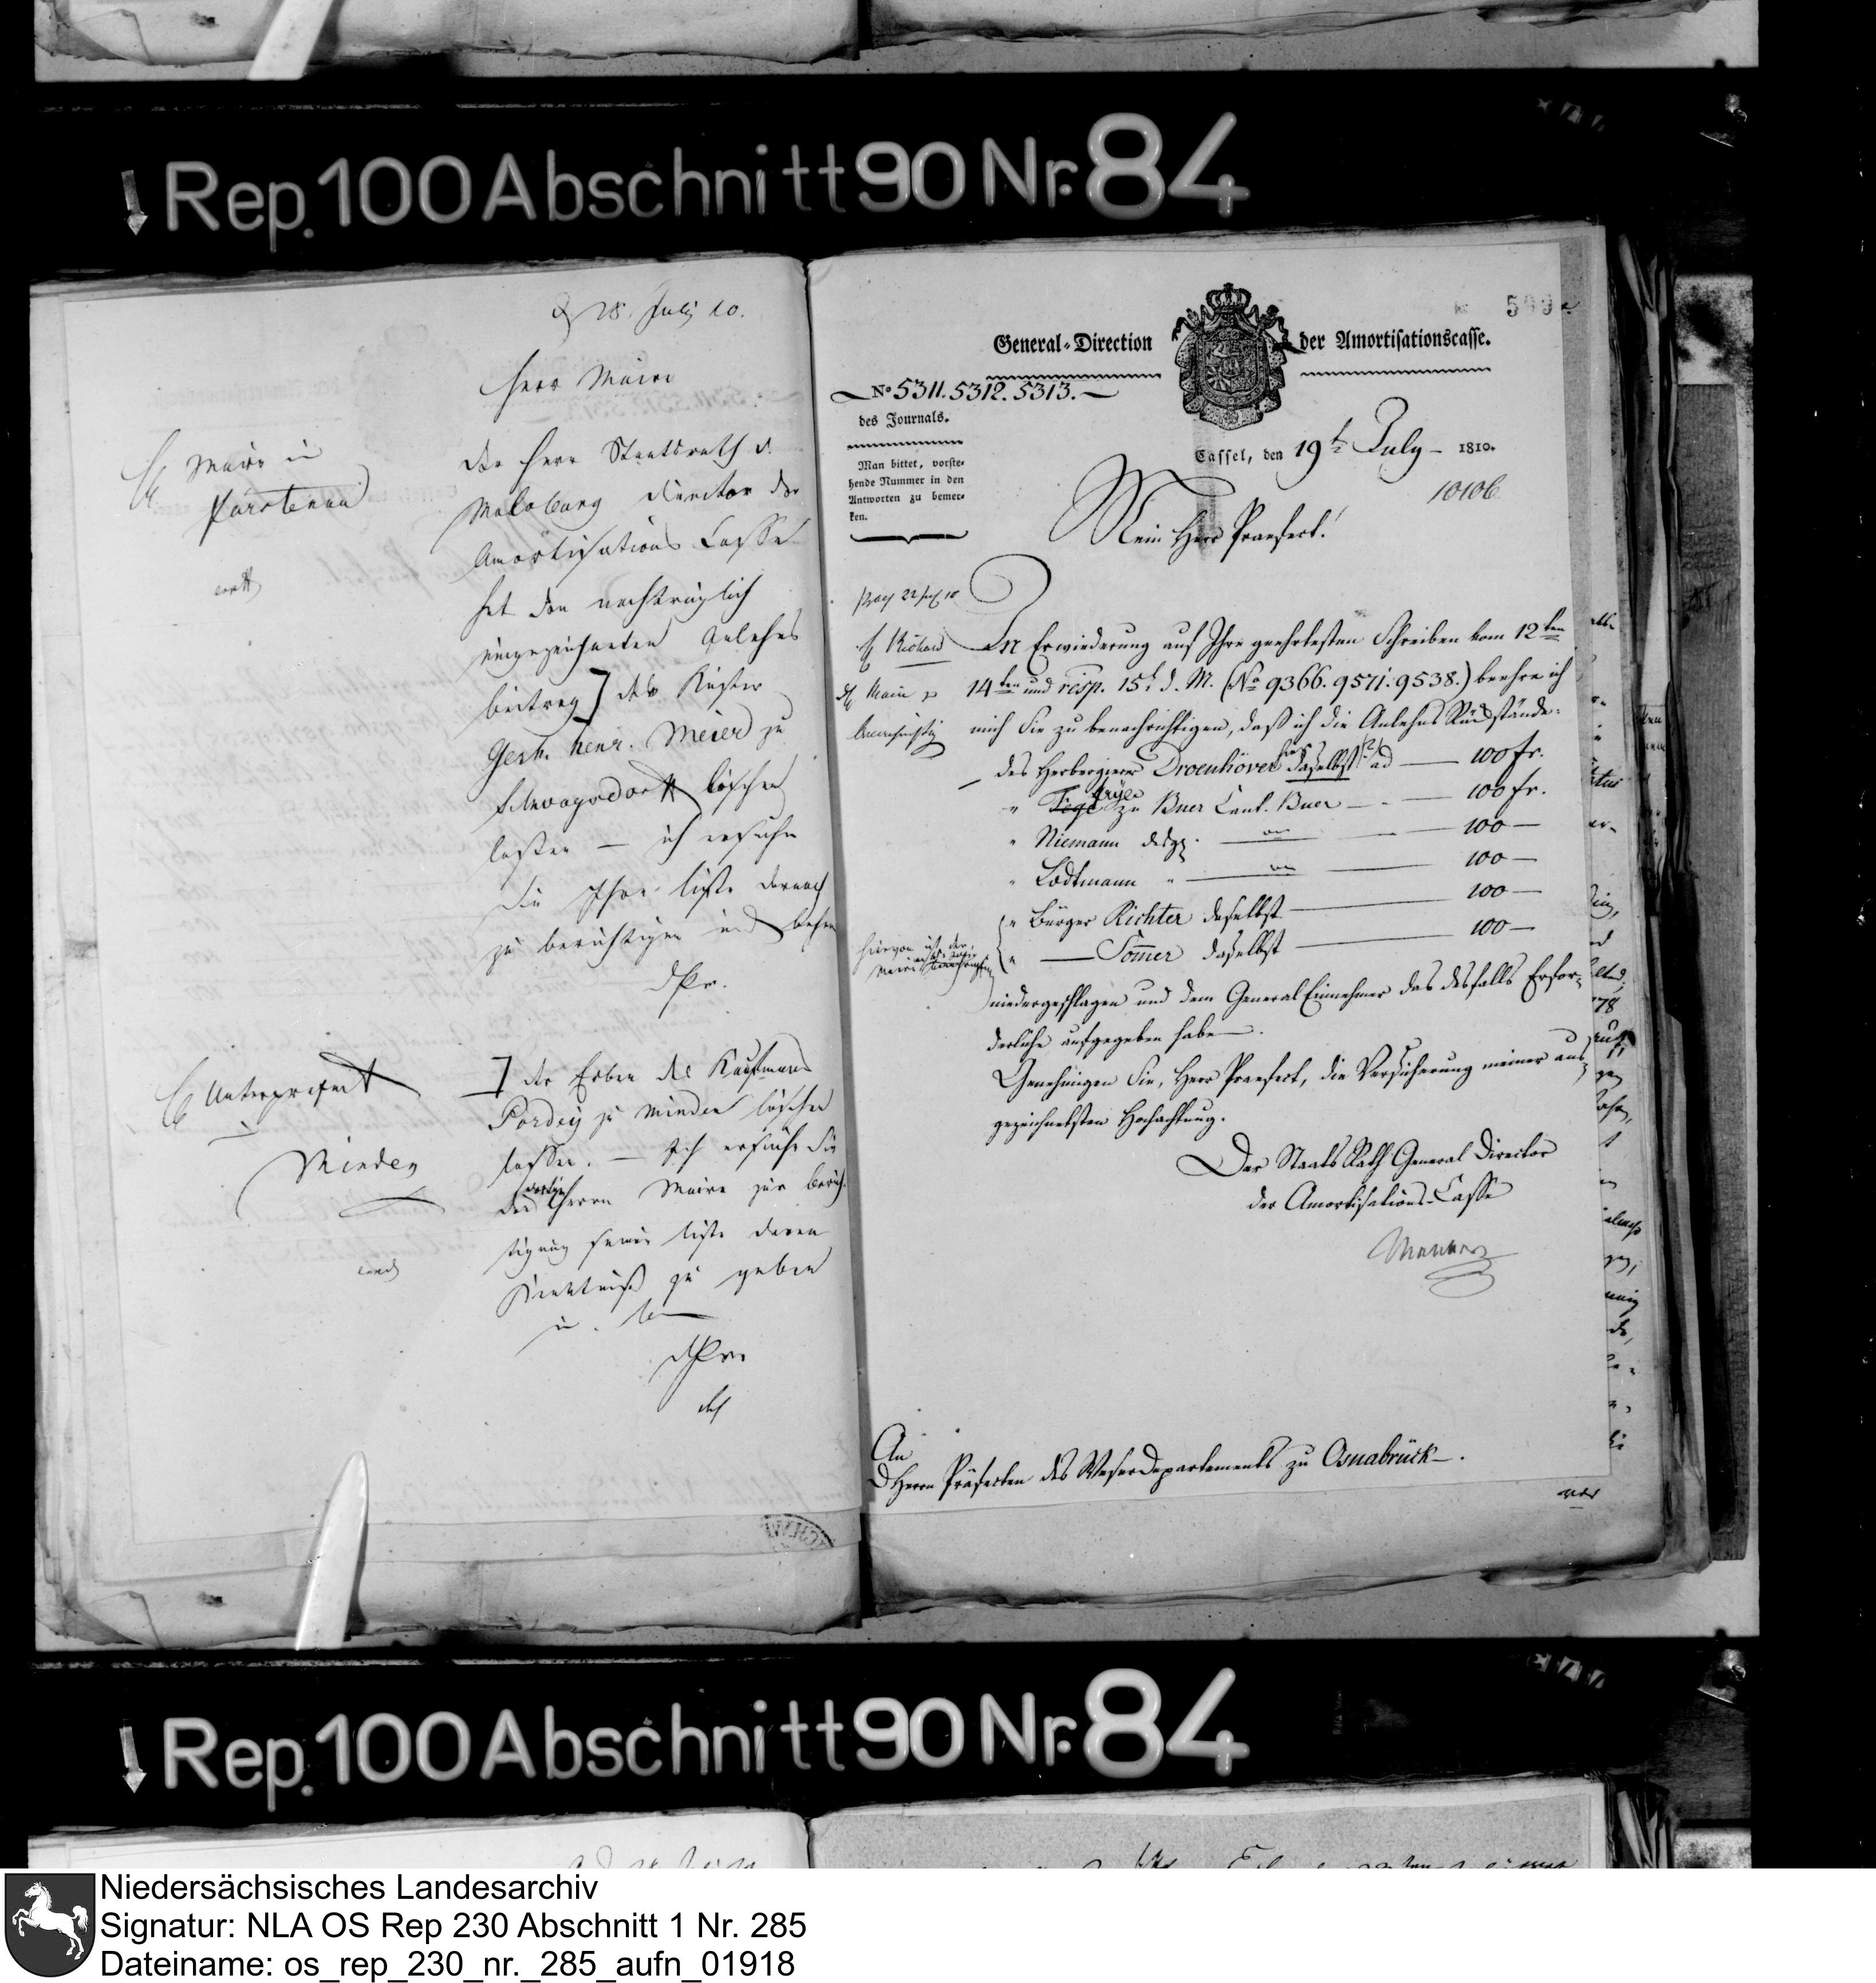 Rep. 100 Abschnitt 90 Nr. 84
28. July 10.
Herr Maire
Maire in
Fürstenau
der Herr Staatsrath v.
Malsburg Director der
Amortisations Casse
hat den nachträglich
eingezeichneten Anlehns
beitrag] des Küster
Gerh. Henr. Meier zu
Schwagsdorff löschen
lassen — ich ersuche
Sie Ihre liste darnach
zu berichtigen und
dPr.
Unterpräfect
Minden
] der Erben des Kaufmann
Pordey zu Minden löschen
lassen. — Ich ersuche Sie
dortigen
den Herrn Maire zur berich-
tigung seiner liste davon
Kenntniß zu geben
u.
dPr.
509
General-Direction der Amortisationscasse.
No 5311. 5312. 5313.
des Journals.
Man bittet, vorste-
hende Nummer in den
Antworten zu bemer-
ken.
Cassel, den 19t July 1810.
10106.
Mein Herr Praefect!
In Erwiederung auf Ihre geehrtesten Schreiben vom 12ten
14ten und resp. 15t d. M. (No 9366. 9571. 9538.) beehre ich
mich Sie zu benachrichtigen, daß ich die Anlehns Rückstände
des Herbergierer Droenhöver daselbst ad — 100 fr.
" zu Buer Cant. Buer — 100 fr.
" Niemann desgl. — 100 —
" Lodtmann " — 100 —
" Bürger Richter daselbst — 100 —
" — Tömer daselbst — 100 —
hievon ist der
Maire
niedergeschlagen und dem General Einnehmer das desfalls Erfor-
derliche aufgegeben habe.
Genehmigen Sie, Herr Praefect, die Versicherung meiner aus-
gezeichnetsten Hochachtung.
Der Staats Rath General Director
der Amortisations-Casse
An
Herrn Präfecten des Weserdepartements zu Osnabrück.
Rep. 100 Abschnitt 90 Nr. 84
Niedersächsisches Landesarchiv
Signatur: NLA OS Rep 230 Abschnitt 1 Nr. 285
Dateiname: os_rep_230_nr._285_aufn_01918